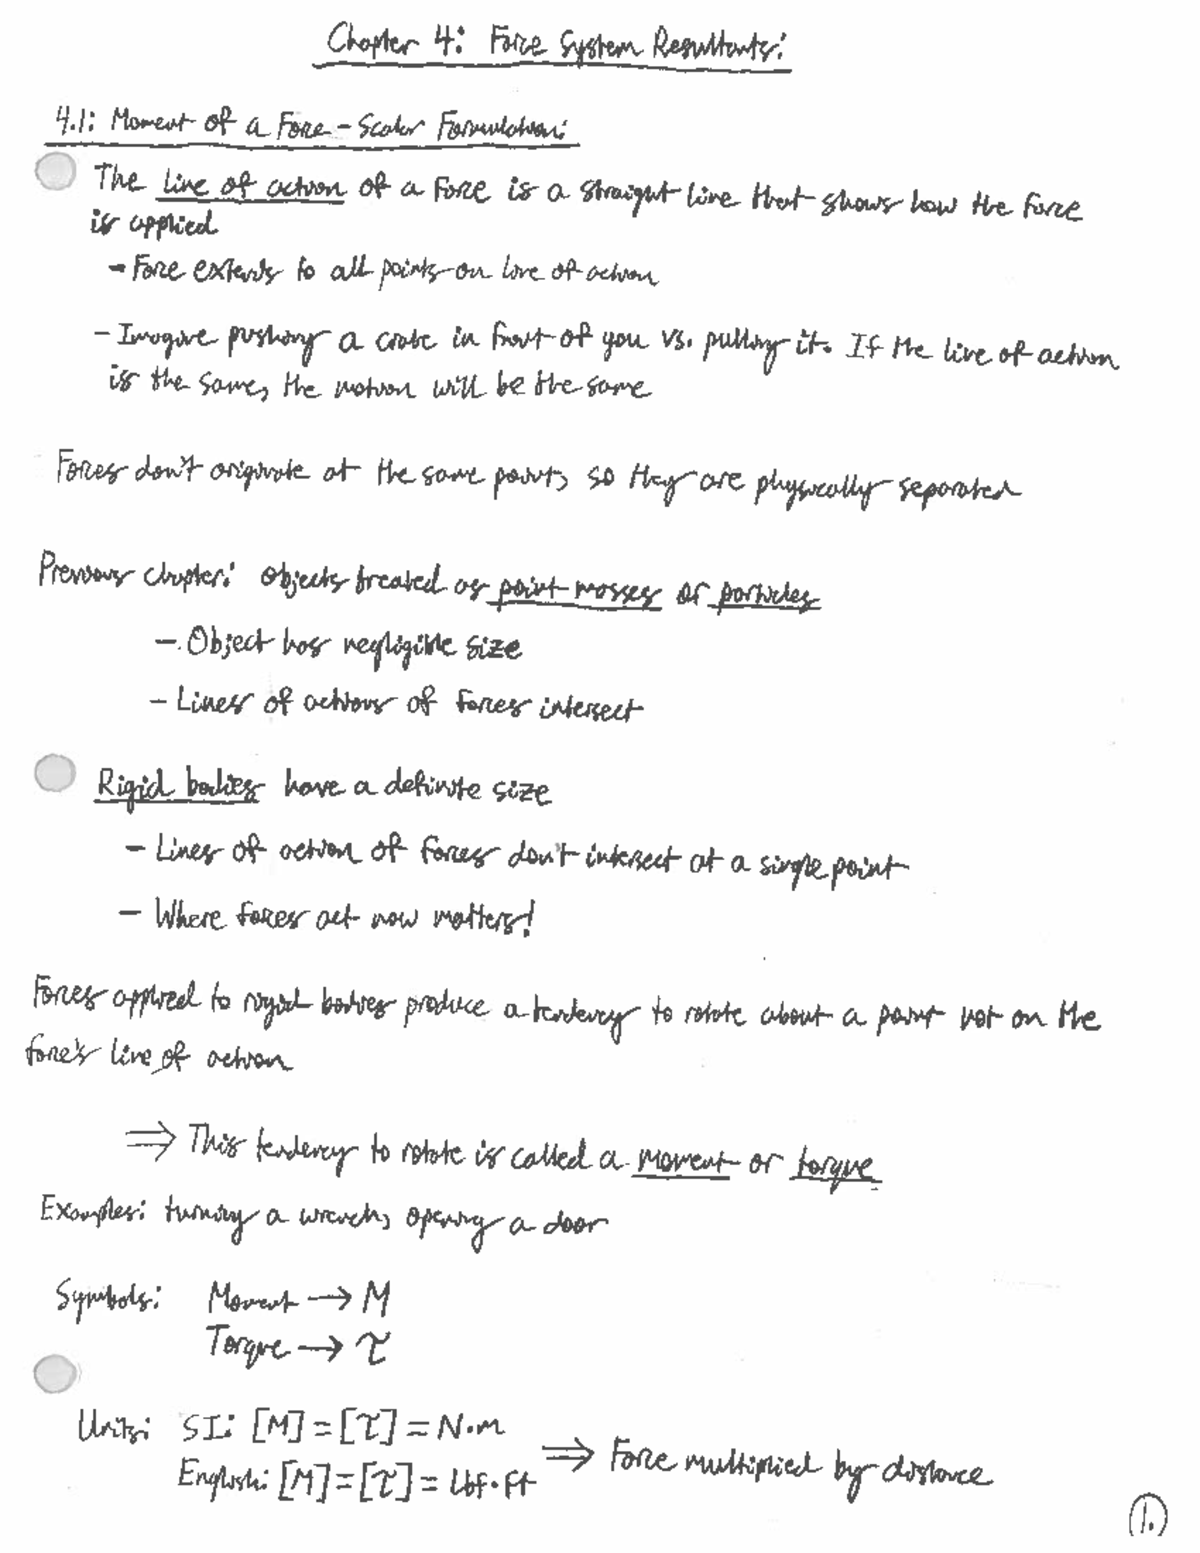 Chapter 4: Force System Resultants:
4.1: Moment of a Force - Scalar Formulation:
The line of action of a force is a straight line that shows how the force
is applied
- Force extends to all points on line of action
- Imagine pushing a crate in front of you vs. pulling it. If the line of action
is the same, the motion will be the same
Forces don't originate at the same point, so they are physically separated
Previous chapter: Objects treated as point masses or particles
- Object has negligible size
- Lines of actions of forces intersect
Rigid bodies have a definite size
- Lines of action of forces don't intersect at a single point
- Where forces act now matters!
Forces applied to rigid bodies produce a tendency to rotate about a point not on the
force's line of action
⇒ This tendency to rotate is called a moment or torque
Examples: turning a wrench, opening a door
Symbols: Moment → M
Torque → τ
Units: SI: [M] = [τ] = N·m
English: [M] = [τ] = lbf·ft ⇒ Force multiplied by distance
1.